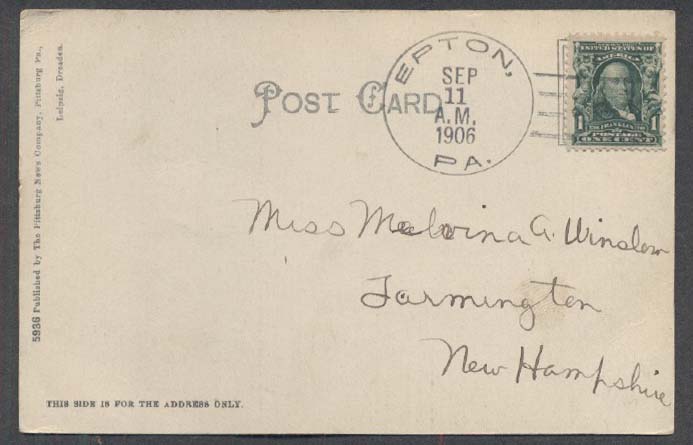 POST CARD
EPTON,
SEP
11
A.M.
1906
PA.
UNITED STATES OF
1 1
FRANKLIN
POSTAGE
ONE CENT
Miss Melvina A. Winslow
Farmington
New Hampshire
THIS SIDE IS FOR THE ADDRESS ONLY.
5936 Published by The Pittsburg News Company, Pittsburg Pa.,
Leipzig, Dresden.